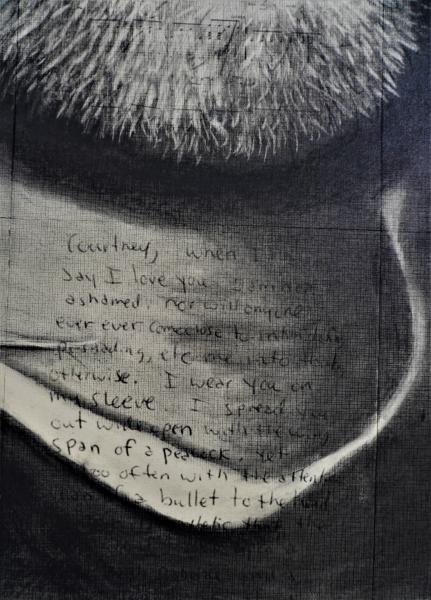 Courtney, when I
say I love you I am not
ashamed, nor will anyone
ever ever come close to intimidating
persuading, etc me into thinking
otherwise. I wear you on
my sleeve. I spread you
out wide open with the wing
span of a peacock, yet
too often with the attention
span of a bullet to the head
that the